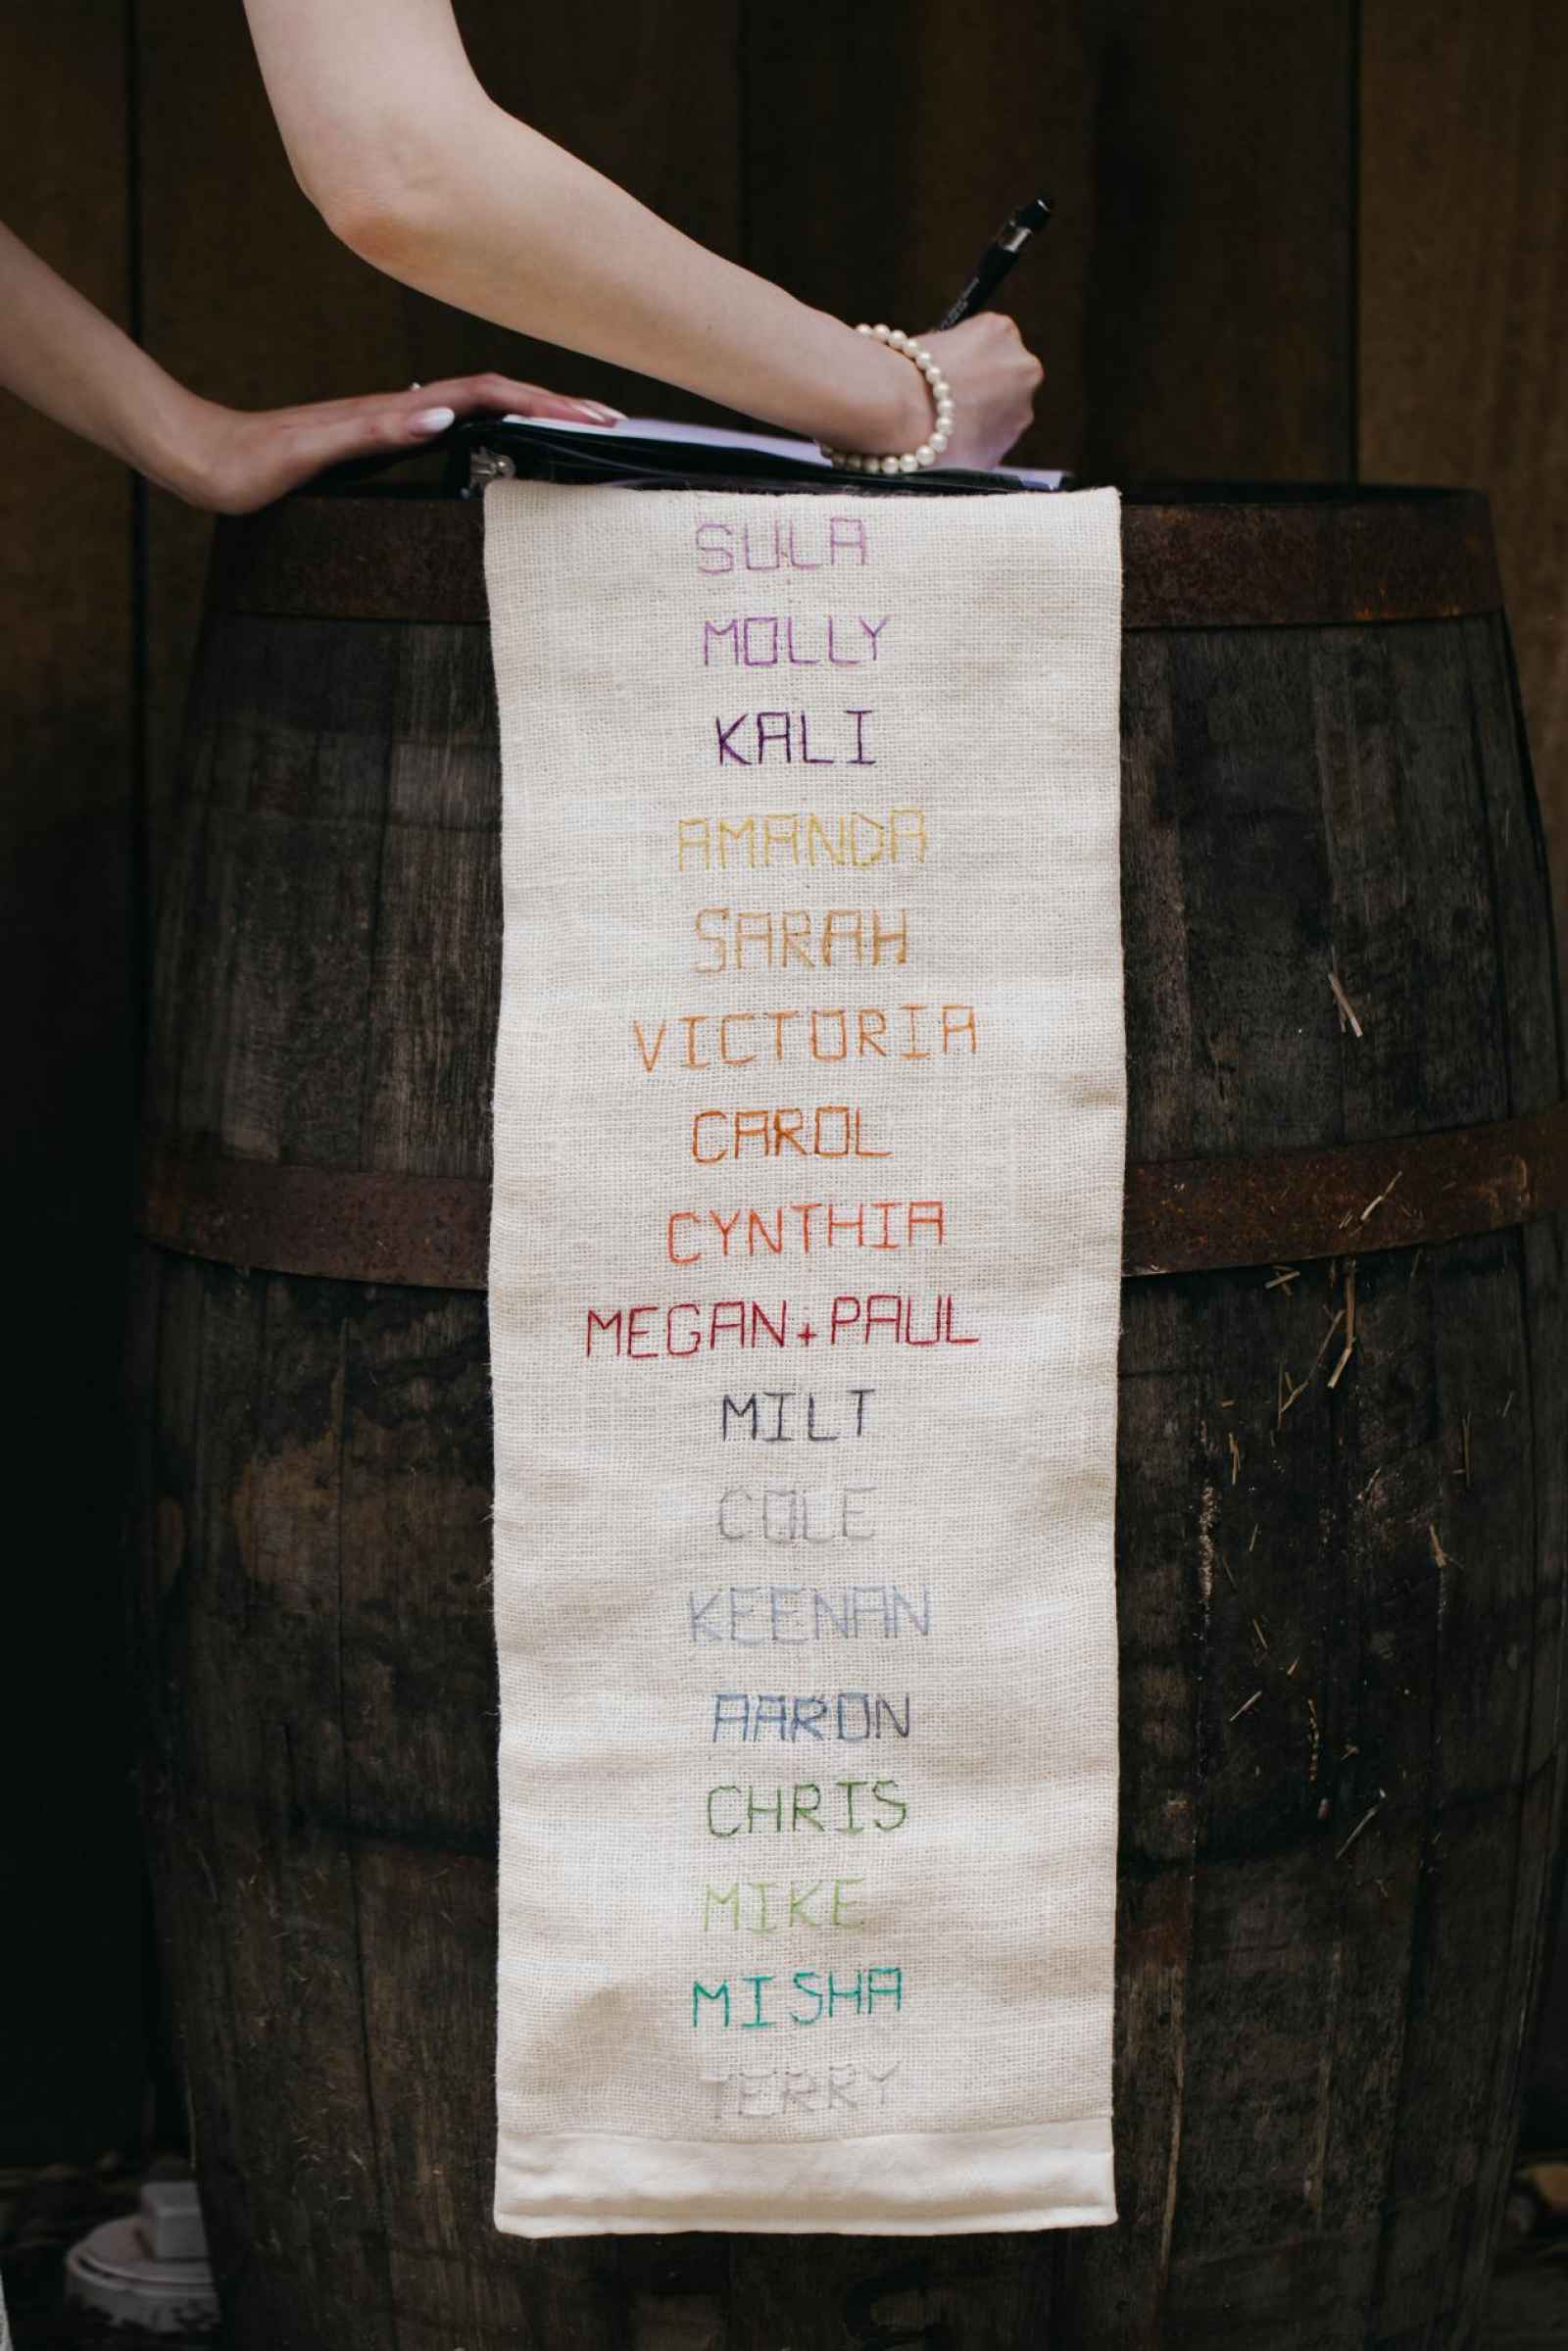 SULA
MOLLY
KALI
AMANDA
SARAH
VICTORIA
CAROL
CYNTHIA
MEGAN+PAUL
MILT
COLE
KEENAN
AARON
CHRIS
MIKE
MISHA
TERRY